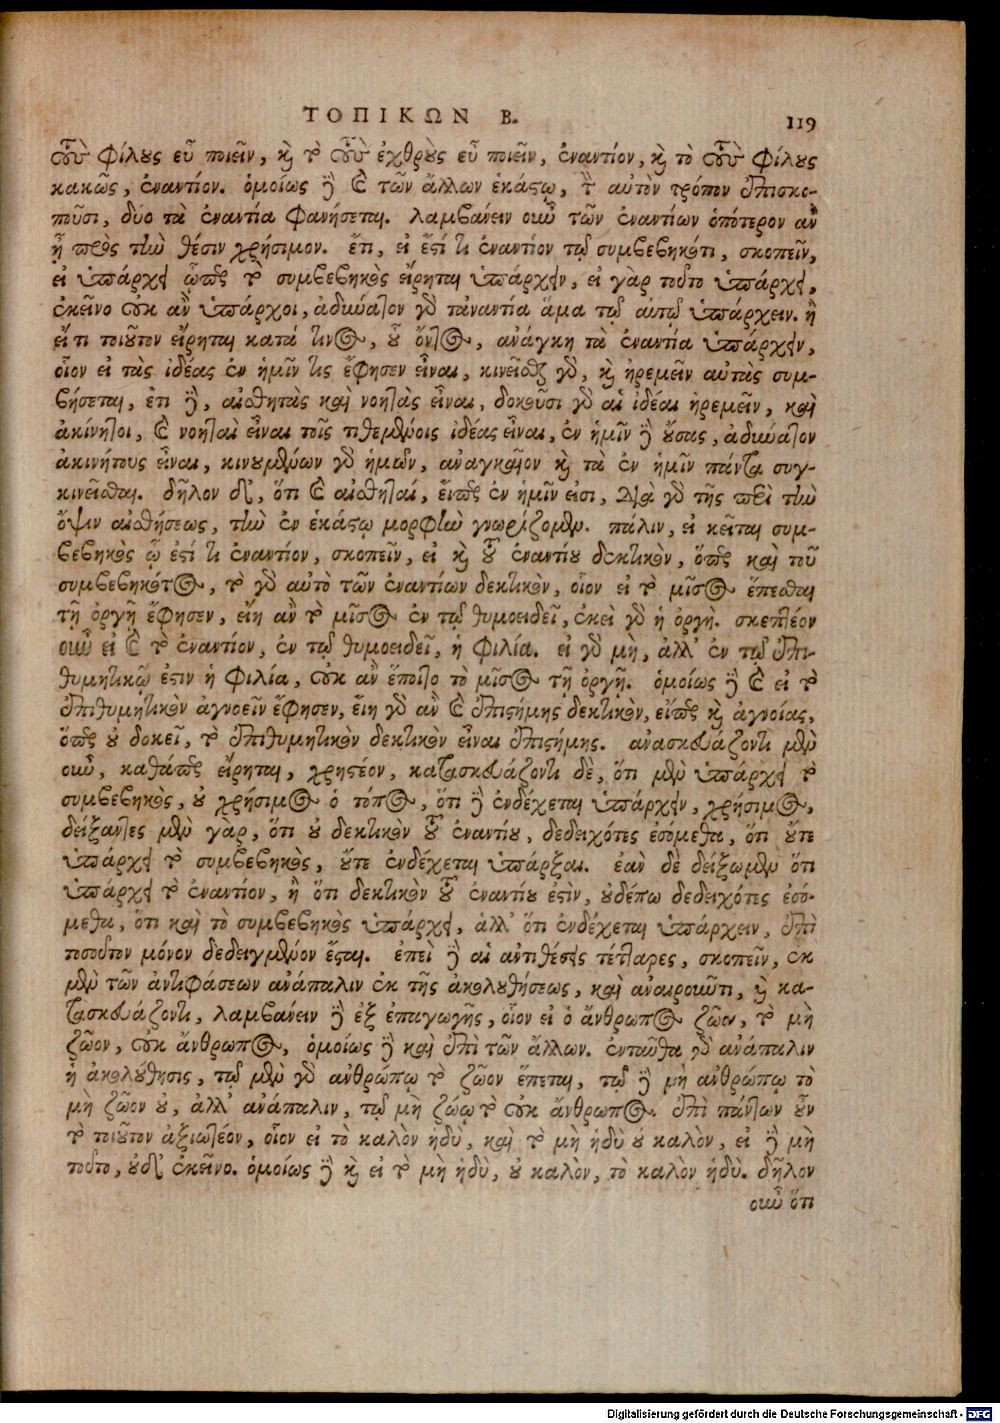 ΤΟΠΙΚΩΝ Β. 119
τοὺς φίλους εὖ ποιεῖν, καὶ τὸ τοὺς ἐχθροὺς εὖ ποιεῖν, ἐναντίον, καὶ τὸ τοὺς φίλους
κακῶς, ἐναντίον. ὁμοίως δὲ καὶ τῶν ἄλλων ἑκάστῳ, τὸν αὐτὸν τρόπον ἐπισκο-
ποῦσι, δύο τὰ ἐναντία φανήσεται. λαμβάνειν οὖν τῶν ἐναντίων ὁπότερον ἂν
ᾖ πρὸς τὴν θέσιν χρήσιμον. ἔτι, εἰ ἔστί τι ἐναντίον τῷ συμβεβηκότι, σκοπεῖν,
εἰ ὑπάρχει ᾧπερ τὸ συμβεβηκὸς εἴρηται ὑπάρχειν, εἰ γὰρ τοῦτο ὑπάρχει,
ἐκεῖνο οὐκ ἂν ὑπάρχοι, ἀδύνατον γὰρ τἀναντία ἅμα τῷ αὐτῷ ὑπάρχειν. ἢ
εἴ τι τοιοῦτον εἴρηται κατά τινος, οὗ ὄντος, ἀνάγκη τὰ ἐναντία ὑπάρχειν,
οἷον εἰ τὰς ἰδέας ἐν ἡμῖν τις ἔφησεν εἶναι, κινεῖσθαι γὰρ, καὶ ἠρεμεῖν αὐτὰς συμ-
βήσεται, ἔτι δὲ, αἰσθητὰς καὶ νοητὰς εἶναι, δοκοῦσι γὰρ αἱ ἰδέαι ἠρεμεῖν, καὶ
ἀκίνητοι, καὶ νοηταὶ εἶναι τοῖς τιθεμένοις ἰδέας εἶναι, ἐν ἡμῖν δὲ οὔσας, ἀδύνατον
ἀκινήτους εἶναι, κινουμένων γὰρ ἡμῶν, ἀναγκαῖον καὶ τὰ ἐν ἡμῖν πάντα συγ-
κινεῖσθαι. δῆλον δ', ὅτι καὶ αἰσθηταί, εἴπερ ἐν ἡμῖν εἰσι, διὰ γὰρ τῆς περὶ τὴν
ὄψιν αἰσθήσεως, τὴν ἐν ἑκάστῳ μορφὴν γνωρίζομεν. πάλιν, εἰ κεῖται συμ-
βεβηκὸς ᾧ ἐστί τι ἐναντίον, σκοπεῖν, εἰ καὶ τοῦ ἐναντίου δεκτικὸν, ὅπερ καὶ τοῦ
συμβεβηκότος, τὸ γὰρ αὐτὸ τῶν ἐναντίων δεκτικὸν, οἷον εἰ τὸ μῖσος ἕπεσθαι
τῇ ὀργῇ ἔφησεν, εἴη ἂν τὸ μῖσος ἐν τῷ θυμοειδεῖ, ἐκεῖ γὰρ ἡ ὀργὴ. σκεπτέον
οὖν εἰ καὶ τὸ ἐναντίον, ἐν τῷ θυμοειδεῖ, ἡ φιλία. εἰ γὰρ μὴ, ἀλλ' ἐν τῷ ἐπι-
θυμητικῷ ἐστιν ἡ φιλία, οὐκ ἂν ἕποιτο τὸ μῖσος τῇ ὀργῇ. ὁμοίως δὲ καὶ εἰ τὸ
ἐπιθυμητικὸν ἀγνοεῖν ἔφησεν, εἴη γὰρ ἂν καὶ ἐπιστήμης δεκτικὸν, εἴπερ καὶ ἀγνοίας,
ὅπερ οὐ δοκεῖ, τὸ ἐπιθυμητικὸν δεκτικὸν εἶναι ἐπιστήμης. ἀνασκευάζοντι μὲν
οὖν, καθάπερ εἴρηται, χρηστέον, κατασκευάζοντι δὲ, ὅτι μὲν ὑπάρχει τὸ
συμβεβηκὸς, οὐ χρήσιμος ὁ τόπος, ὅτι δὲ ἐνδέχεται ὑπάρχειν, χρήσιμος,
δείξαντες μὲν γὰρ, ὅτι οὐ δεκτικὸν τοῦ ἐναντίου, δεδειχότες ἐσόμεθα, ὅτι οὔτε
ὑπάρχει τὸ συμβεβηκὸς, οὔτε ἐνδέχεται ὑπάρξαι. ἐὰν δὲ δείξωμεν ὅτι
ὑπάρχει τὸ ἐναντίον, ἢ ὅτι δεκτικὸν τοῦ ἐναντίου ἐστὶν, οὐδέπω δεδειχότες ἐσό-
μεθα, ὅτι καὶ τὸ συμβεβηκὸς ὑπάρχει, ἀλλ' ὅτι ἐνδέχεται ὑπάρχειν, ἐπὶ
τοσοῦτον μόνον δεδειγμένον ἔσται. ἐπεὶ δὲ αἱ ἀντιθέσεις τέτταρες, σκοπεῖν, ἐκ
μὲν τῶν ἀντιφάσεων ἀνάπαλιν ἐκ τῆς ἀκολουθήσεως, καὶ ἀναιροῦντι, καὶ κα-
τασκευάζοντι, λαμβάνειν δὲ ἐξ ἐπαγωγῆς, οἷον εἰ ὁ ἄνθρωπος ζῶον, τὸ μὴ
ζῶον, οὐκ ἄνθρωπος, ὁμοίως δὲ καὶ ἐπὶ τῶν ἄλλων. ἐνταῦθα γὰρ ἀνάπαλιν
ἡ ἀκολούθησις, τῷ μὲν γὰρ ἀνθρώπῳ τὸ ζῶον ἕπεται, τῷ δὲ μὴ ἀνθρώπῳ τὸ
μὴ ζῶον οὐ, ἀλλ' ἀνάπαλιν, τῷ μὴ ζώῳ τὸ οὐκ ἄνθρωπος. ἐπὶ πάντων οὖν
τὸ τοιοῦτον ἀξιωτέον, οἷον εἰ τὸ καλὸν ἡδὺ, καὶ τὸ μὴ ἡδὺ οὐ καλὸν, εἰ δὲ μὴ
τοῦτο, οὐδ' ἐκεῖνο. ὁμοίως δὲ καὶ εἰ τὸ μὴ ἡδὺ, οὐ καλὸν, τὸ καλὸν ἡδὺ. δῆλον
οὖν ὅτι
Digitalisierung gefördert durch die Deutsche Forschungsgemeinschaft - DFG